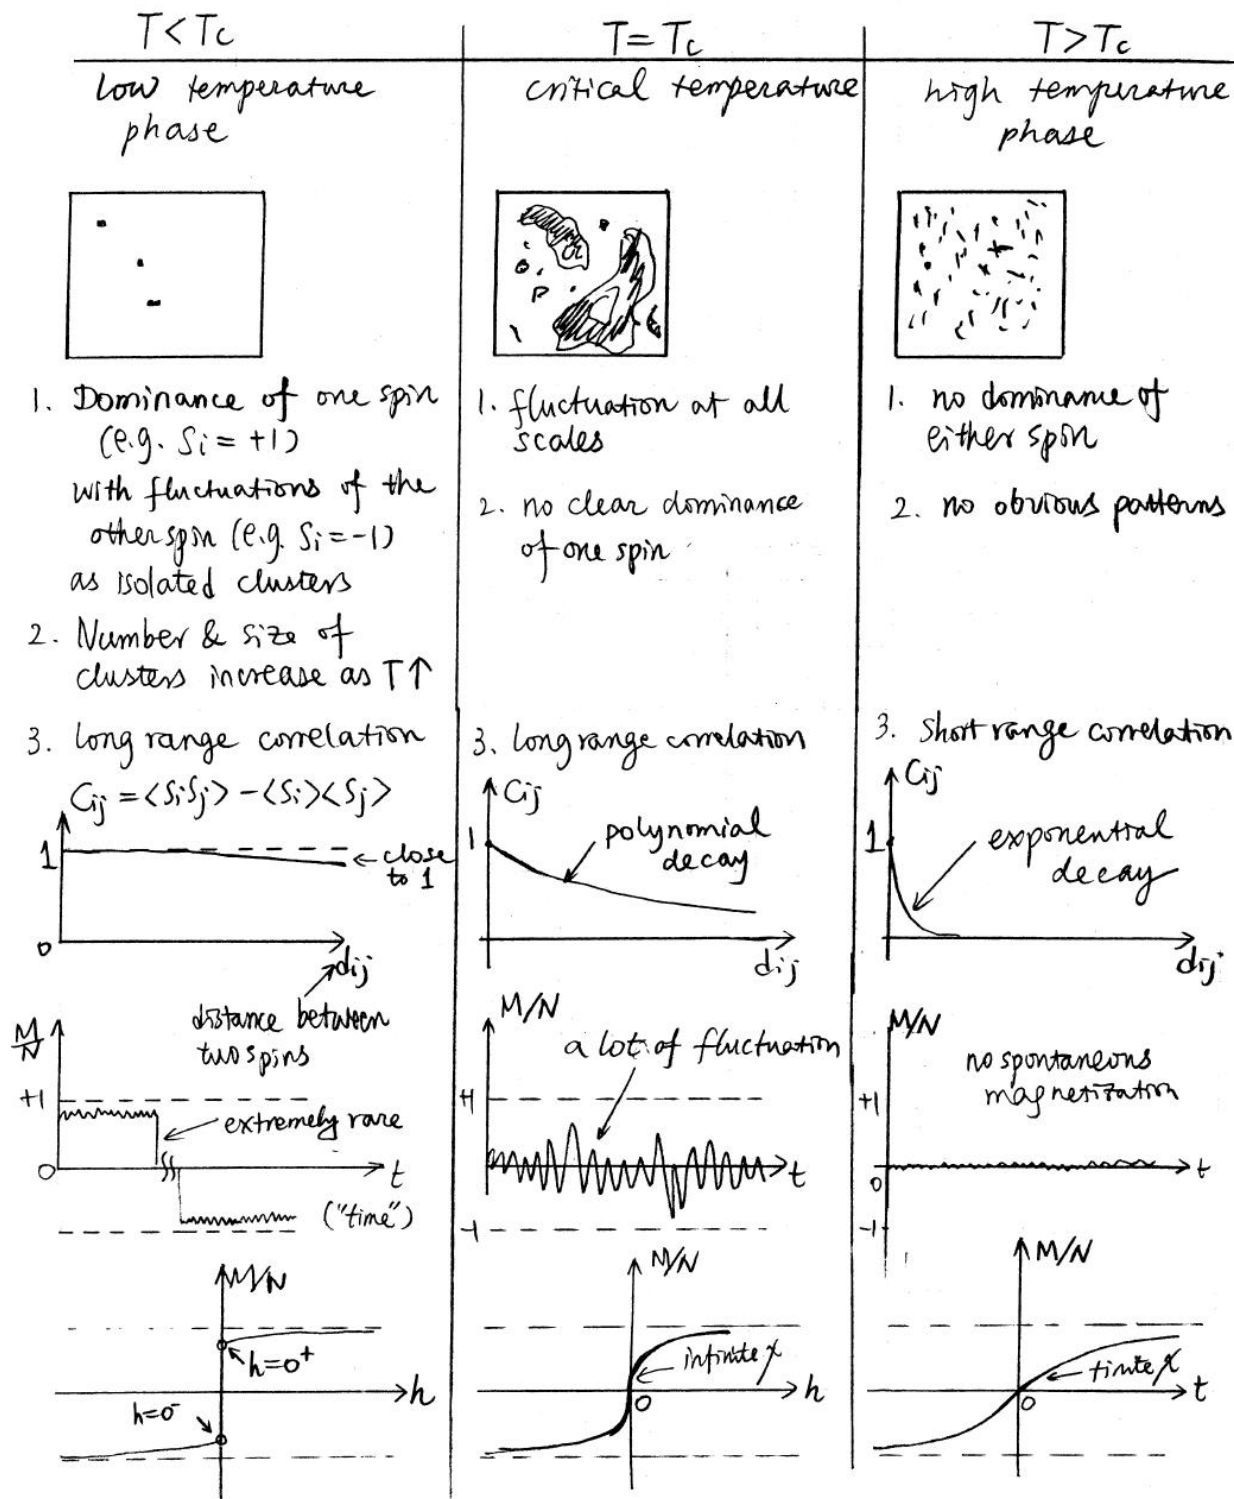 T < Tc
low temperature
phase
1. Dominance of one spin
(e.g. Si = +1)
with fluctuations of the
other spin (e.g. Si = -1)
as isolated clusters
2. Number & size of
clusters increase as T↑
3. Long range correlation
Cij = <SiSj> - <Si><Sj>
1
← close
to 1
0
dij
distance between
two spins
M/N
+1
extremely rare
0
t
("time")
M/N
h=0+
h
h=0-
T = Tc
critical temperature
1. fluctuation at all
scales
2. no clear dominance
of one spin
3. Long range correlation
Cij
1
polynomial
decay
dij
M/N
a lot of fluctuation
+1
t
-1
M/N
infinite χ
0
h
T > Tc
high temperature
phase
1. no dominance of
either spin
2. no obvious patterns
3. Short range correlation
Cij
1
exponential
decay
dij
M/N
no spontaneous
magnetization
+1
t
0
-1
M/N
finite χ
0
t